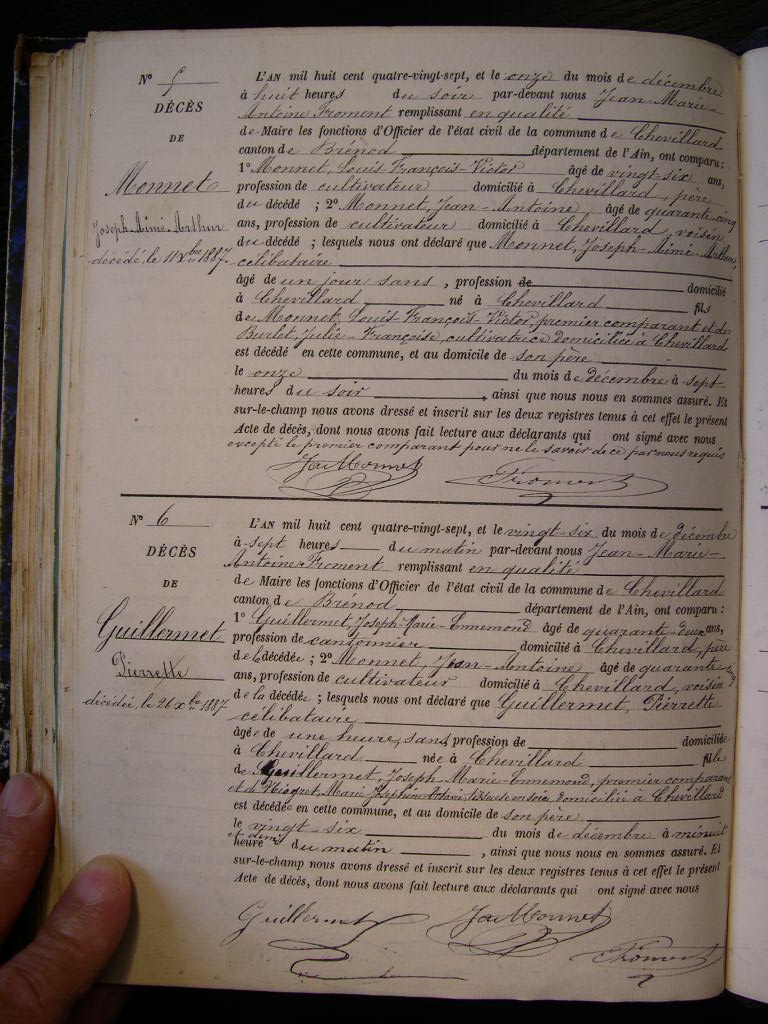 N° 5
DÉCÈS
DE
Monnet
Joseph-Aimé-Arthur
décédé, le 11 Xbre 1887.
L'AN mil huit cent quatre-vingt-sept, et le onze du mois de décembre
à huit heures du soir par-devant nous Jean-Marie-
Antoine Froment remplissant en qualité
de Maire les fonctions d'Officier de l'état civil de la commune de Chevillard
canton de Brénod département de l'Ain, ont comparu :
1° Monnet, Louis-François-Victor âgé de vingt-six ans,
profession de cultivateur domicilié à Chevillard, père
du décédé ; 2° Monnet, Jean-Antoine âgé de quarante-cinq
ans, profession de cultivateur domicilié à Chevillard, voisin
du décédé ; lesquels nous ont déclaré que Monnet, Joseph-Aimé-Arthur,
célibataire
âgé de un jour sans, profession de domicilié
à Chevillard né à Chevillard fils
de Monnet, Louis-François-Victor, premier comparant et de
Burlet, Julie-Françoise, cultivatrice domiciliée à Chevillard
est décédé en cette commune, et au domicile de son père
le onze du mois de décembre à sept
heures du soir , ainsi que nous nous en sommes assuré. Et
sur-le-champ nous avons dressé et inscrit sur les deux registres tenus à cet effet le présent
Acte de décès, dont nous avons fait lecture aux déclarants qui ont signé avec nous
excepté le premier comparant pour ne le savoir de ce par nous requis
Jn Monnet Froment
N° 6
DÉCÈS
DE
Guillermet
Pierrette
décédée, le 26 Xbre 1887.
L'AN mil huit cent quatre-vingt-sept, et le vingt-six du mois de décembre
à sept heures du matin par-devant nous Jean-Marie-
Antoine Froment remplissant en qualité
de Maire les fonctions d'Officier de l'état civil de la commune de Chevillard
canton de Brénod département de l'Ain, ont comparu :
1° Guillermet, Joseph-Marie-Ennemond âgé de quarante-deux ans,
profession de cantonnier domicilié à Chevillard, père
de la décédée ; 2° Monnet, Jean-Antoine âgé de quarante-cinq
ans, profession de cultivateur domicilié à Chevillard, voisin
de la décédée ; lesquels nous ont déclaré que Guillermet, Pierrette
célibataire
âgée de une heure, sans profession de domiciliée
à Chevillard née à Chevillard fille
de Guillermet, Joseph-Marie-Ennemond, premier comparant
et de Marie Joséphine tisseuse en soie, domiciliée à Chevillard
est décédée en cette commune, et au domicile de son père
le vingt-six du mois de décembre à minuit
et demi
heure du matin , ainsi que nous nous en sommes assuré. Et
sur-le-champ nous avons dressé et inscrit sur les deux registres tenus à cet effet le présent
Acte de décès, dont nous avons fait lecture aux déclarants qui ont signé avec nous
Guillermet Jn Monnet
Froment